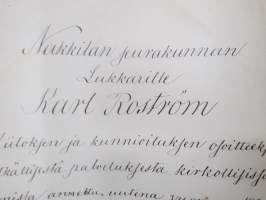 Nakkilan seurakunnan
Lukkarille
Karl Roström
kiitoksen ja kunnioituksen osoitteeksi
palveluksesta kirkollisissa
annettu